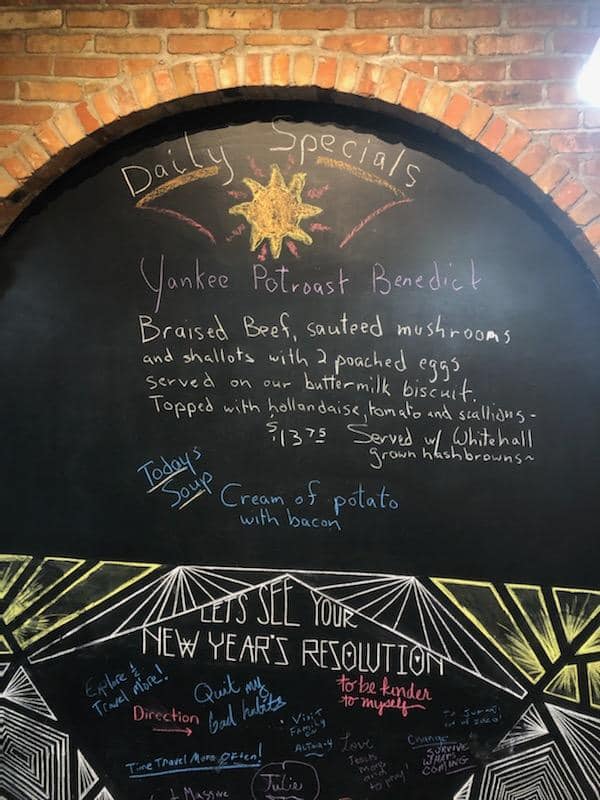 Daily Specials
Yankee Potroast Benedict
Braised Beef, sauteed mushrooms
and shallots with 2 poached eggs
served on our buttermilk biscuit.
Topped with hollandaise, tomato and scallions-
$13.75 Served w/ Whitehall
grown hashbrowns~
Todays
Soup
Cream of potato
with bacon
LET'S SEE YOUR
NEW YEAR'S RESOLUTION
Explore &
Travel More!
Quit my
bad habits
to be kinder
to myself
Direction
Visit
Family
Time Travel More Often!
Love
Jesus
more
and
to pray!
Change
SURVIVE
WHATS
COMING
Massive
Julie